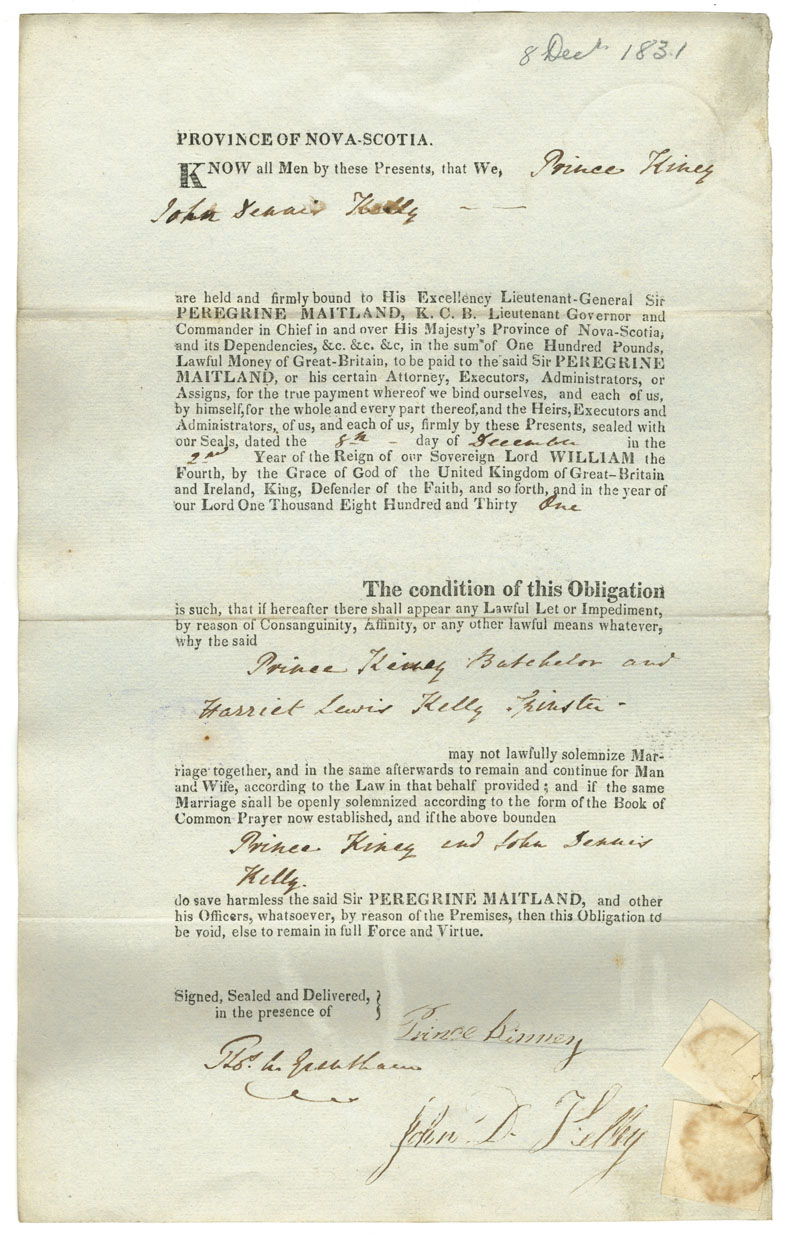 8 Decr 1831
PROVINCE OF NOVA-SCOTIA.
KNOW all Men by these Presents, that We, Prince Kiney
John Dennis Kelly
are held and firmly bound to His Excellency Lieutenant-General Sir
PEREGRINE MAITLAND, K. C. B. Lieutenant Governor and
Commander in Chief in and over His Majesty's Province of Nova-Scotia,
and its Dependencies, &c. &c. &c, in the sum of One Hundred Pounds,
Lawful Money of Great-Britain, to be paid to the said Sir PEREGRINE
MAITLAND, or his certain Attorney, Executors, Administrators, or
Assigns, for the true payment whereof we bind ourselves, and each of us,
by himself, for the whole and every part thereof, and the Heirs, Executors and
Administrators, of us, and each of us, firmly by these Presents, sealed with
our Seals, dated the 8th - day of December in the
2nd Year of the Reign of our Sovereign Lord WILLIAM the
Fourth, by the Grace of God of the United Kingdom of Great-Britain
and Ireland, King, Defender of the Faith, and so forth, and in the year of
our Lord One Thousand Eight Hundred and Thirty One
The condition of this Obligation
is such, that if hereafter there shall appear any Lawful Let or Impediment,
by reason of Consanguinity, Affinity, or any other lawful means whatever,
why the said
Prince Kiney Batchelor and
Harriet Lewis Kelly Spinster -
may not lawfully solemnize Mar-
riage together, and in the same afterwards to remain and continue for Man
and Wife, according to the Law in that behalf provided; and if the same
Marriage shall be openly solemnized according to the form of the Book of
Common Prayer now established, and if the above bounden
Prince Kiney and John Dennis
Kelly.
do save harmless the said Sir PEREGRINE MAITLAND, and other
his Officers, whatsoever, by reason of the Premises, then this Obligation to
be void, else to remain in full Force and Virtue.
Signed, Sealed and Delivered,
in the presence of
Prince Kinney
John D. Kelly